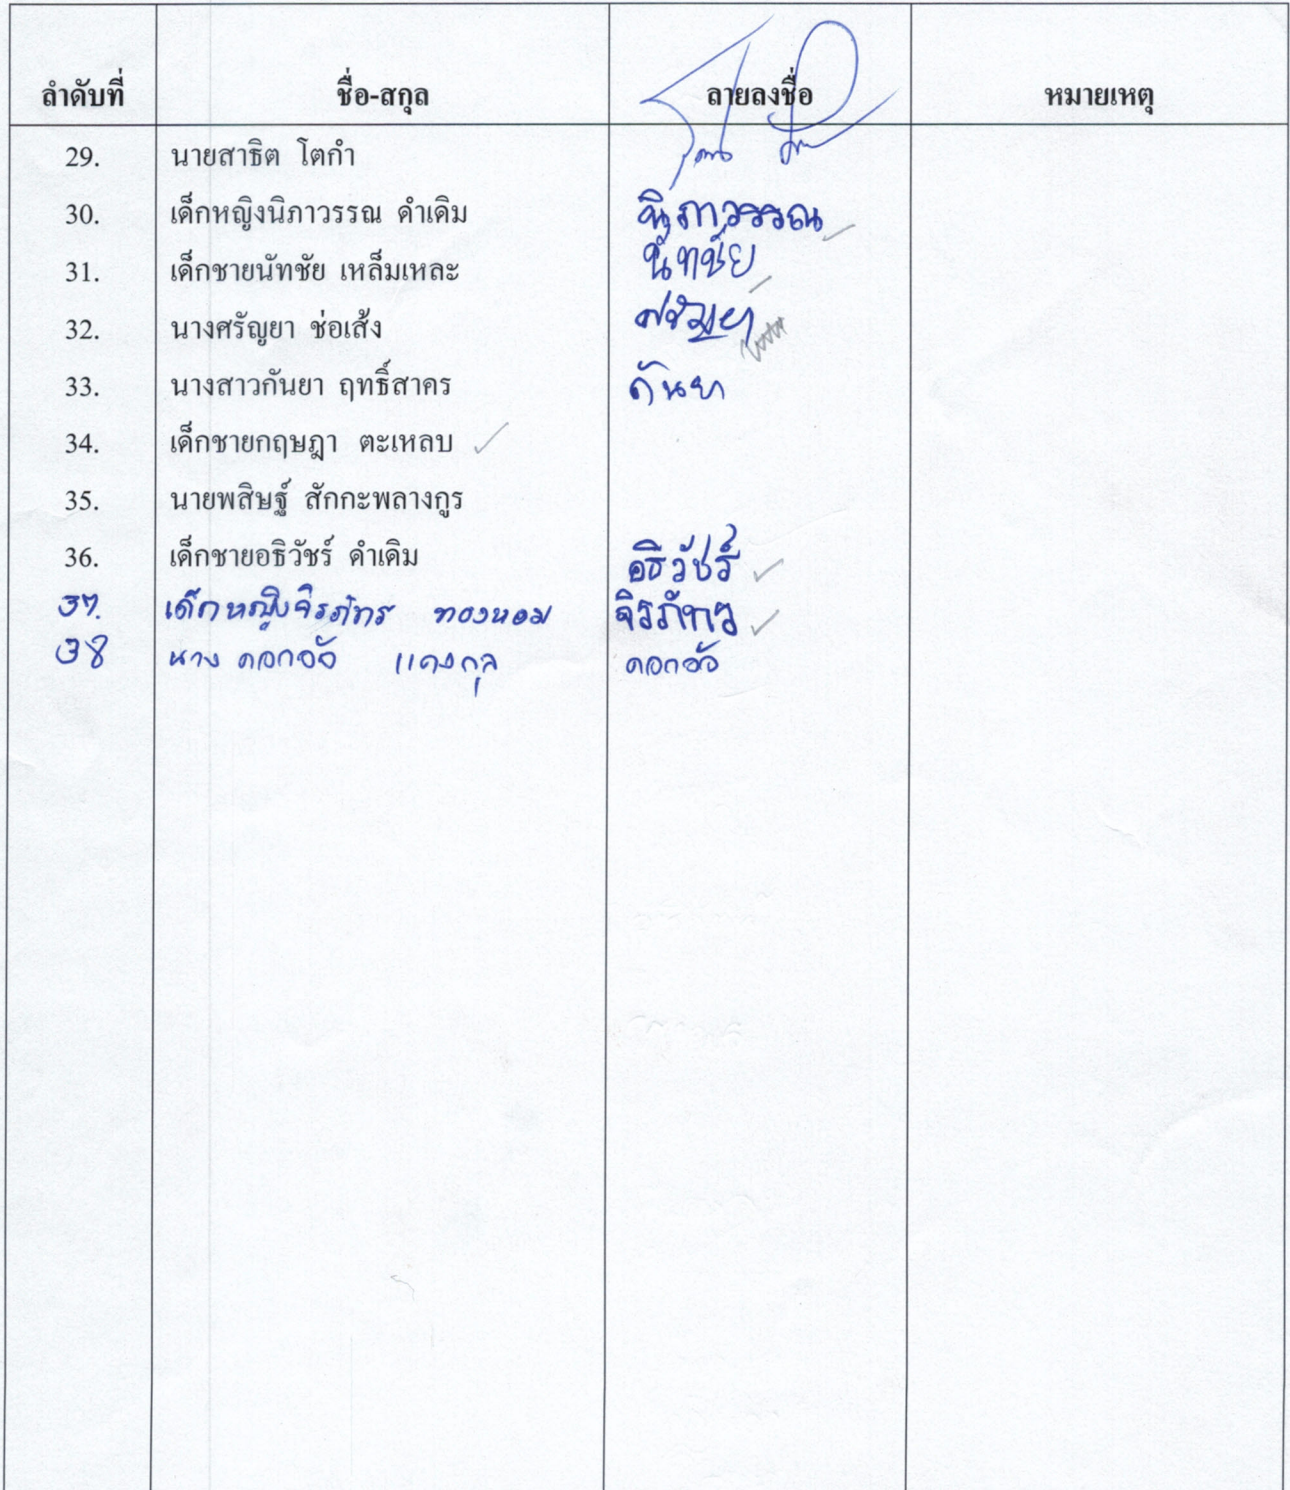 ลำดับที่ ชื่อ-สกุล ลายลงชื่อ หมายเหตุ
29. นายสาธิต โตกำ
30. เด็กหญิงนิภาวรรณ ดำเดิม นิภาวรรณ
31. เด็กชายนัทชัย เหล็มเหละ นัทชัย
32. นางศรัญยา ช่อเส้ง ศรัญยา
33. นางสาวกันยา ฤทธิ์สาคร กันยา
34. เด็กชายกฤษฎา ตะเหลบ
35. นายพสิษฐ์ สักกะพลางกูร
36. เด็กชายอธิวัชร์ ดำเดิม อธิวัชร์
37. เด็กหญิงจิรภัทร ทองหอม จิรภัทร
38 นาง ดอกอ้อ แดงกุล ดอกอ้อ